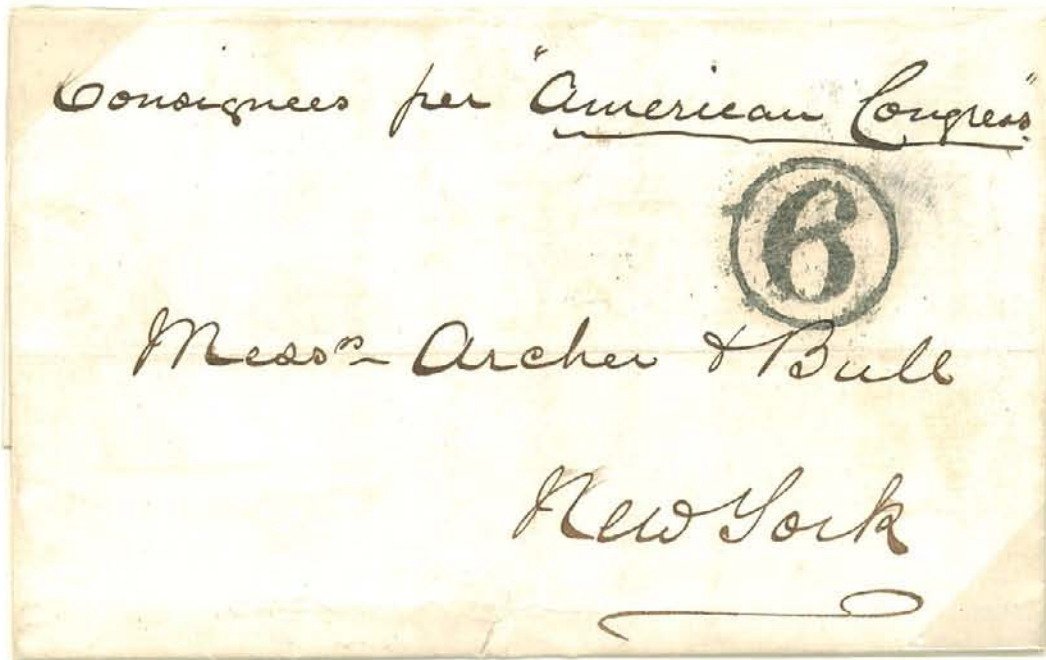 Consignees per "American Congress"
6
Messrs Archer & Bull
New York